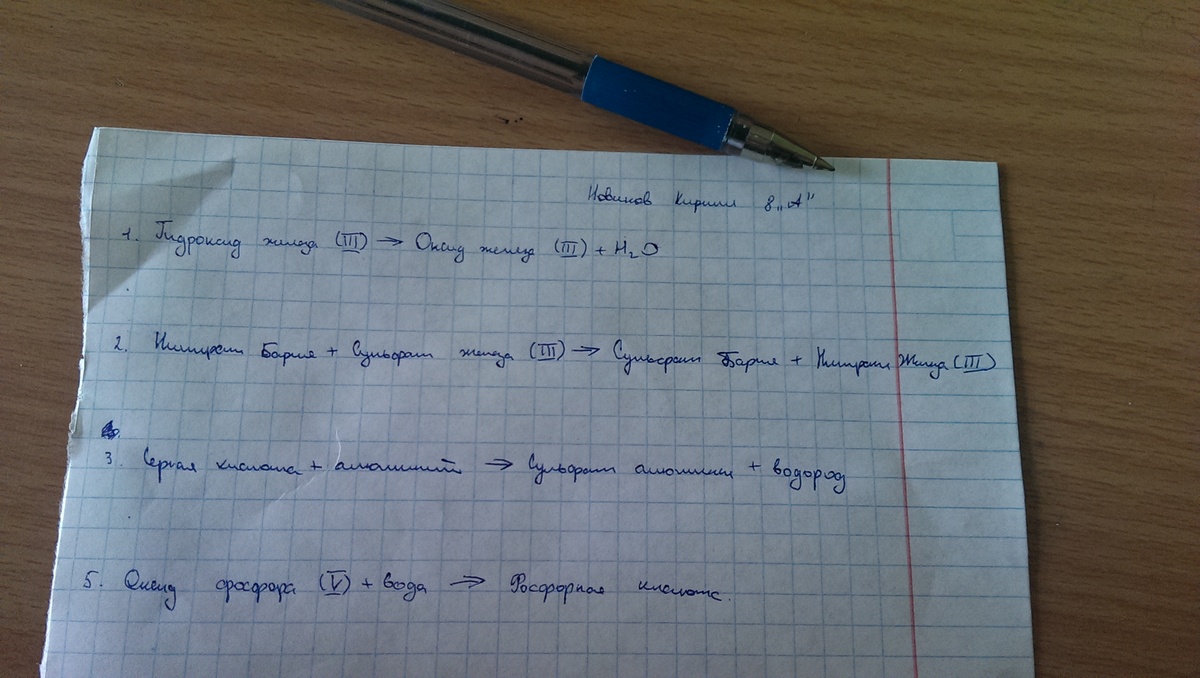 Новиков Кирилл 8 „А"
1. Гидроксид железа (III) → Оксид железа (III) + H₂O
2. Нитрат Бария + Сульфат железа (III) → Сульфат Бария + Нитрат Железа (III)
3. Серная кислота + алюминий → Сульфат алюминия + водород
5. Оксид фосфора (V) + вода → Фосфорная кислота.